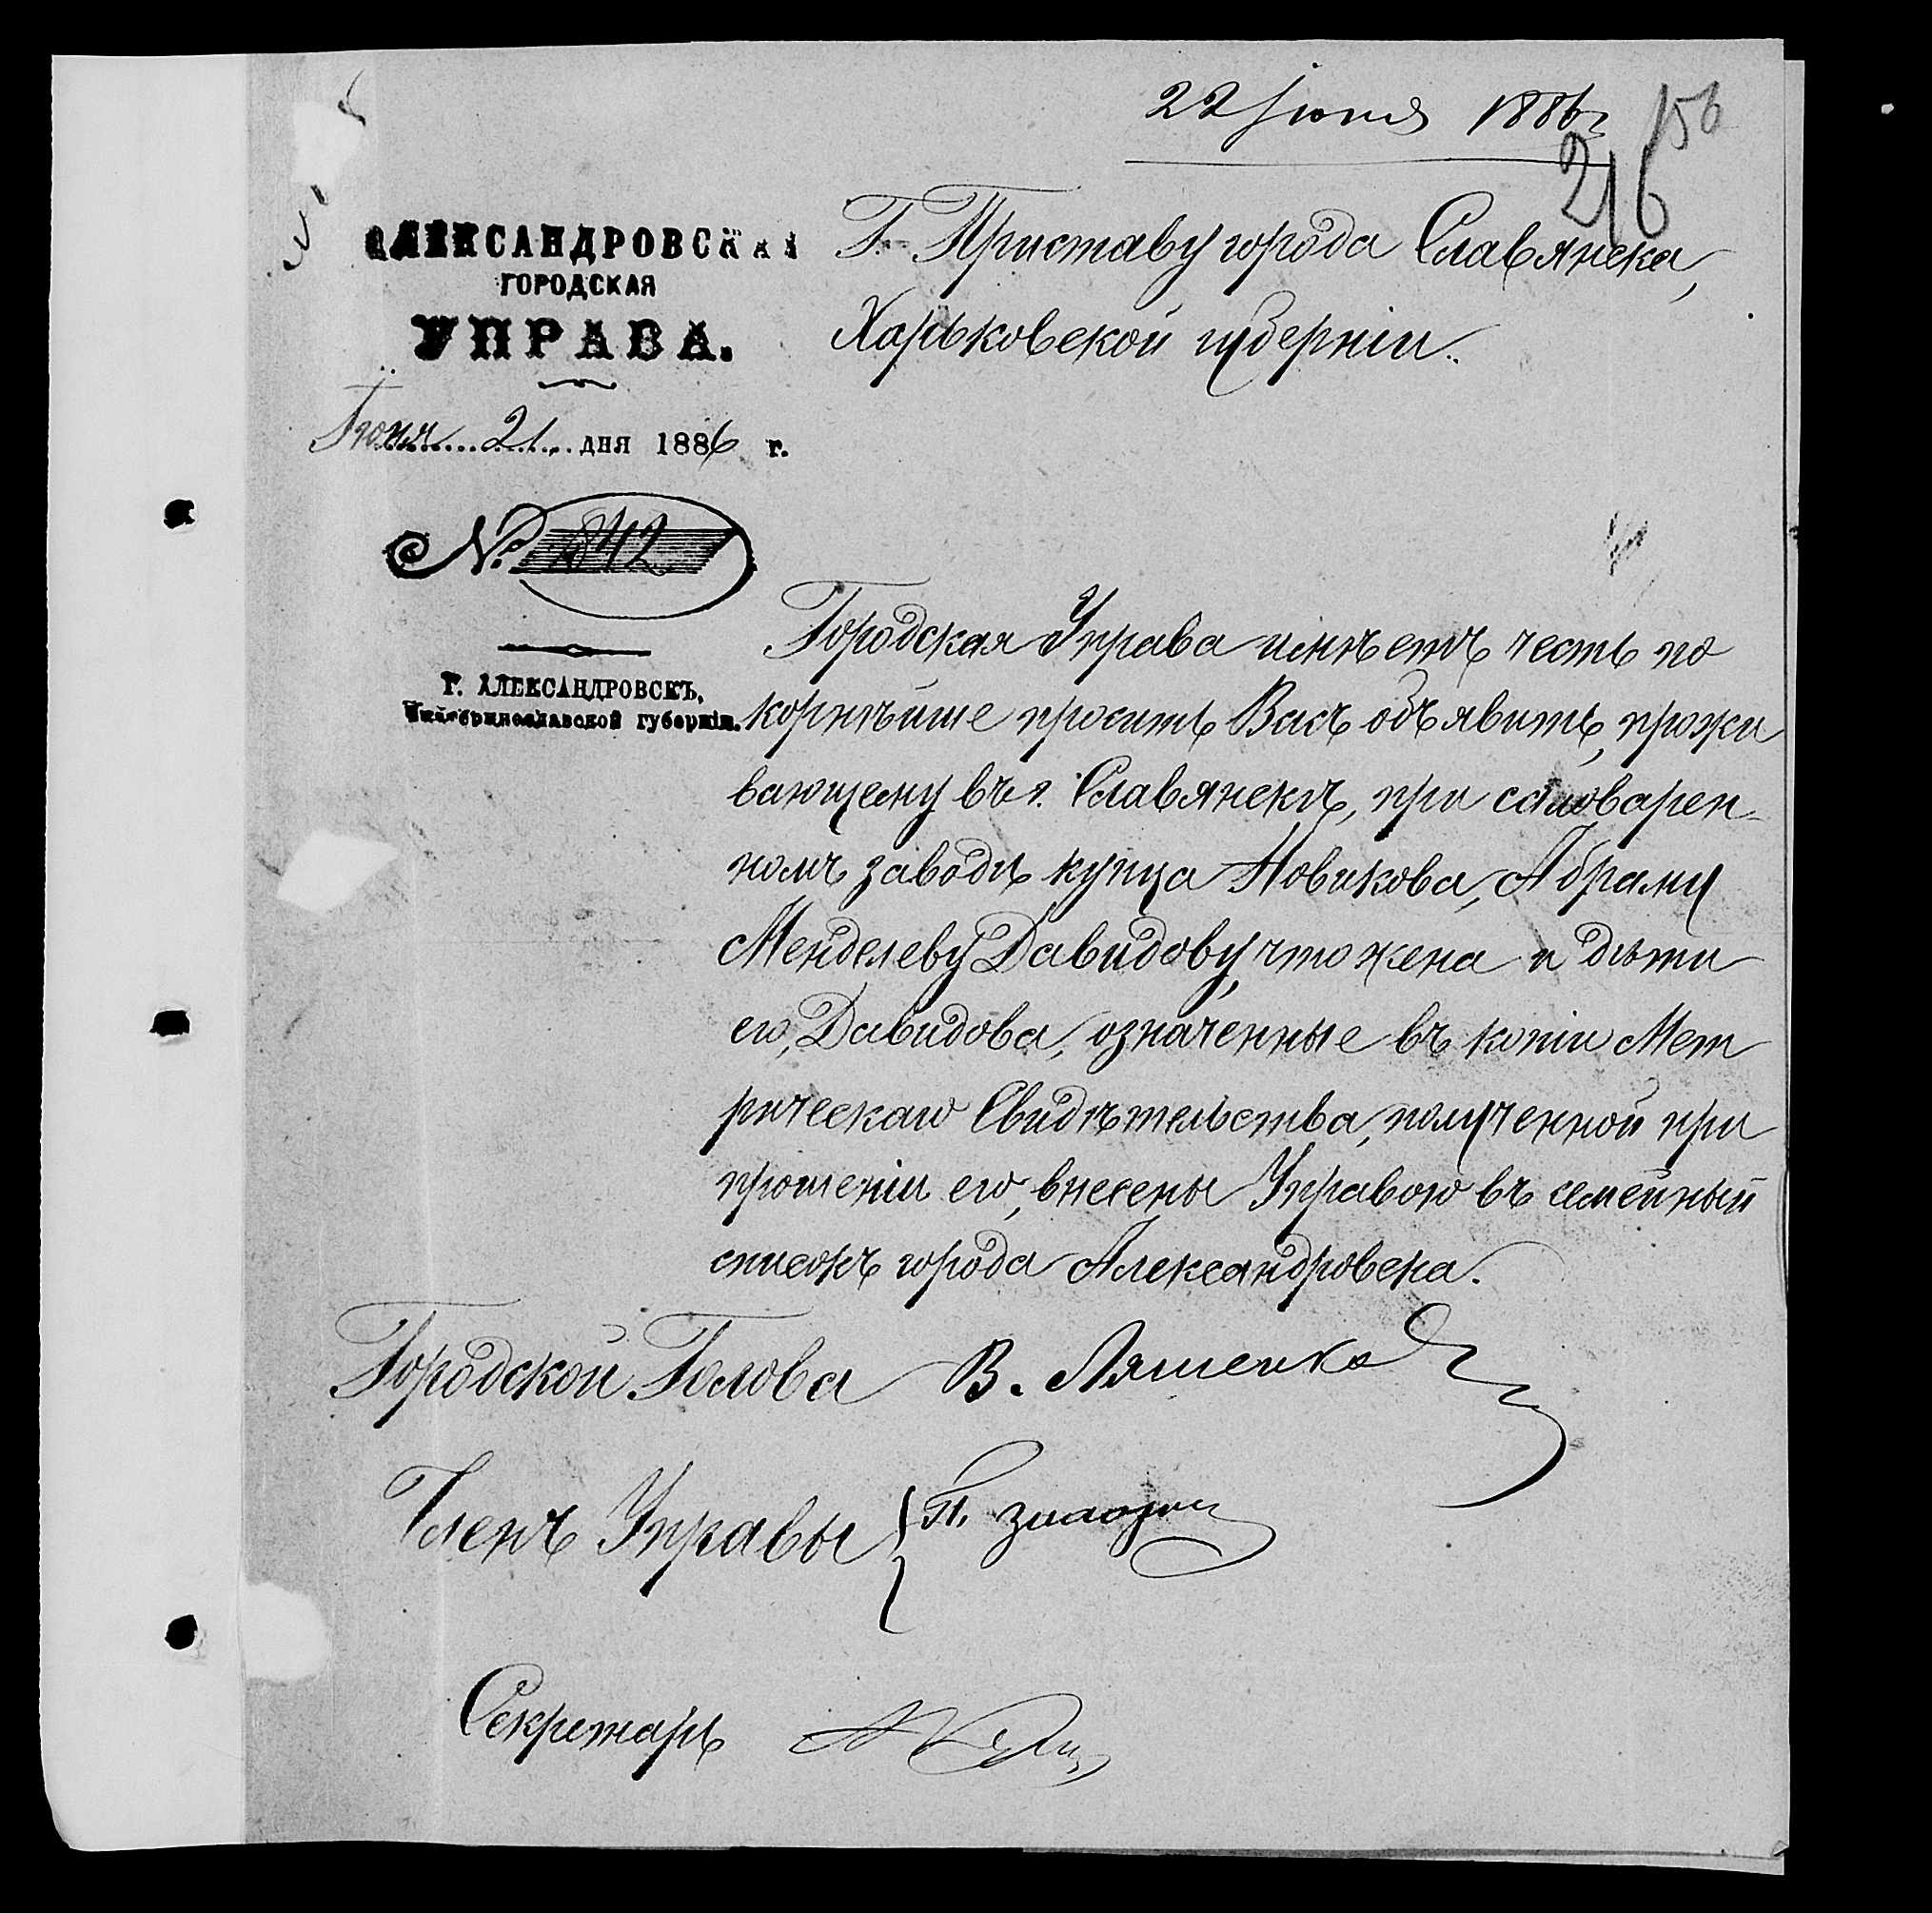 22 Іюня 1886 г
156
216
АЛЕКСАНДРОВСКАЯ
ГОРОДСКАЯ
УПРАВА.
Іюня 21 дня 1886 г.
№ 842
Г. АЛЕКСАНДРОВСКЪ,
Екатеринославской губерніи.
Г. Приставу города Славянска,
Харьковской губерніи.
Городская Управа имѣетъ честь по
корнѣйше просить Васъ объявить, прожи
вающему въ г. Славянскѣ, при солеварен-
номъ заводѣ купца Новикова, Абраму
Менделеву Давидову, что жена и дѣти
его, Давидова, означенные въ копіи Мет
рическаго Свидѣтельства, полученной при
прошеніи его, внесены Управою въ семейный
списокъ города Александровска.
Городской Голова В. Ляшенко
Членъ Управы П.
Секретарь